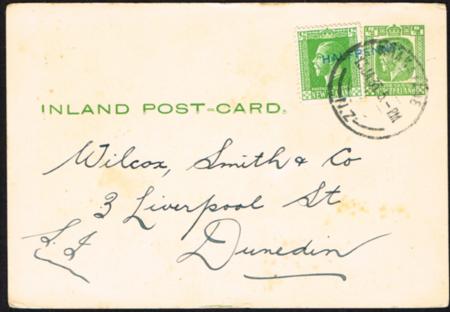 HALFPENNY
NEW ZEALAND
INLAND POST-CARD.
Wilcox, Smith & Co
3 Liverpool St
Dunedin